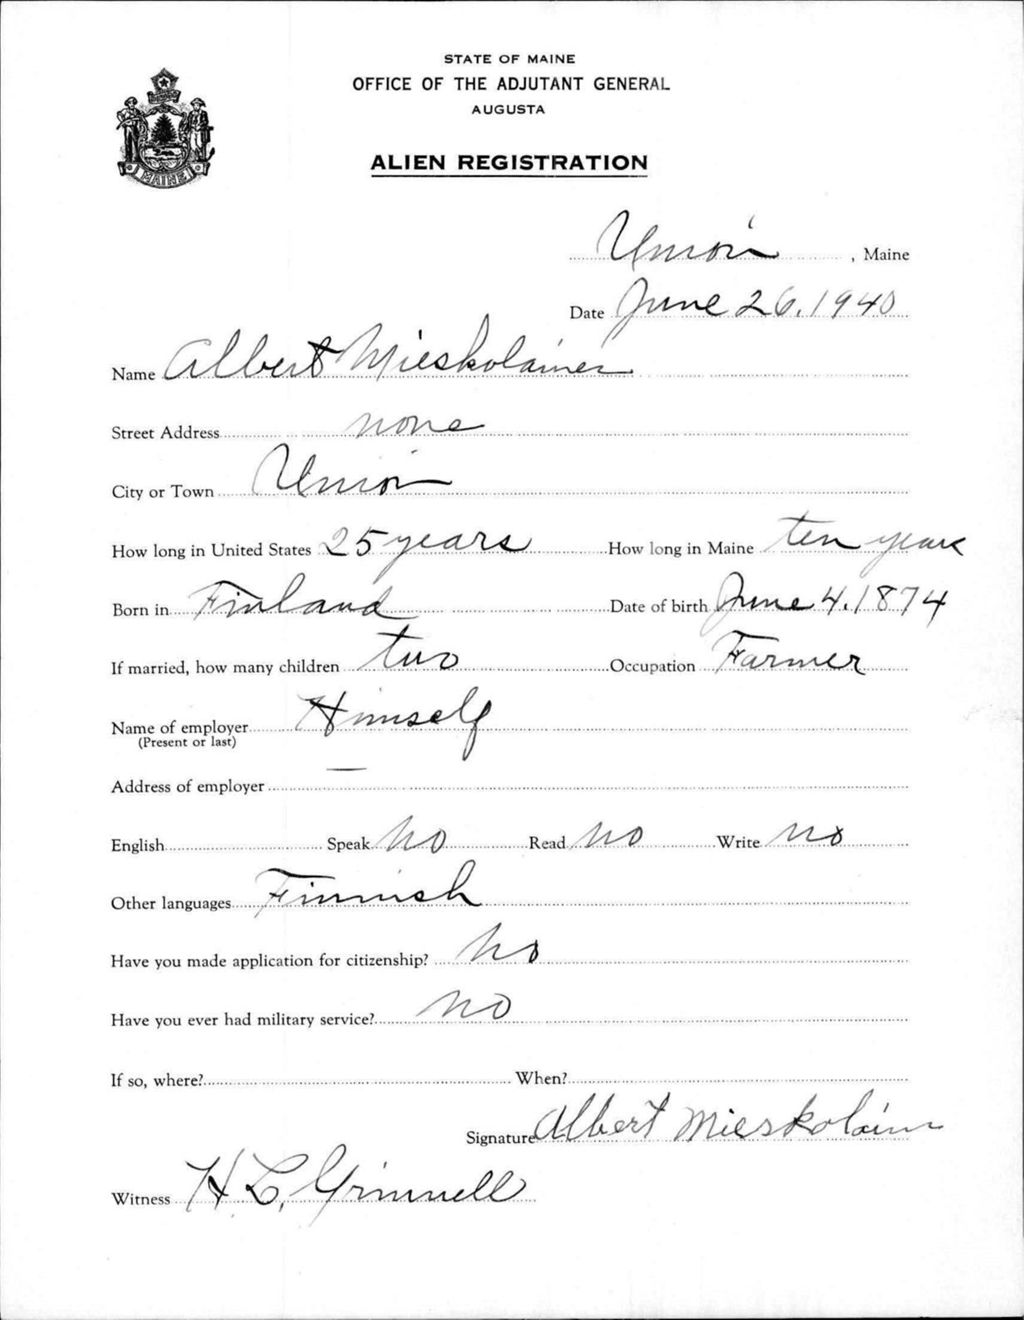 STATE OF MAINE
OFFICE OF THE ADJUTANT GENERAL
AUGUSTA
ALIEN REGISTRATION
MAINE
Union, Maine
Date June 26, 1940
Name Albert Mieskolainen
Street Address none
City or Town Union
How long in United States 25 years How long in Maine ten years
Born in Finland Date of birth June 4, 1874
If married, how many children two Occupation Farmer
Name of employer Himself
(Present or last)
Address of employer —
English Speak No Read No Write No
Other languages Finnish
Have you made application for citizenship? No
Have you ever had military service? No
If so, where? When?
Signature Albert Mieskolainn
Witness H. L. Grinnell